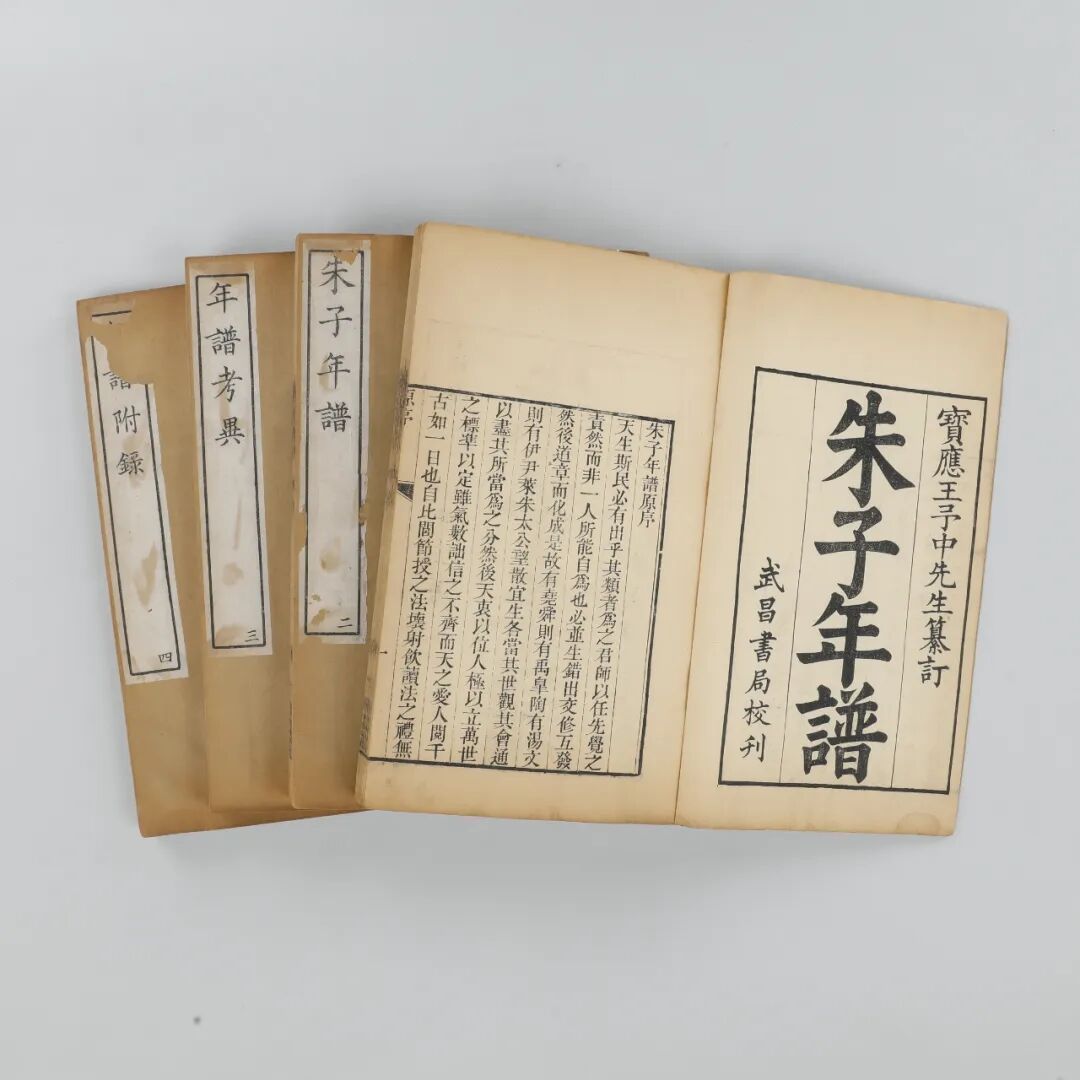 寶應王予中先生纂訂
朱子年譜
武昌書局校刊
朱子年譜原序
天生斯民必有出乎其類者爲之君師以任先覺之
責然而非一人所能自爲也必並生錯出交修互發
然後道章而化成是故有堯舜則有禹皐陶有湯文
則有伊尹萊朱太公望散宜生各當其世觀其會通
以盡其所當爲之分然後天衷以位人極以立萬世
之標準以定雖氣數詘信之不齊而天之愛人閱千
古如一日也自比閭節授之法壞射飲讀法之禮無
原序
一
朱子年譜
二
年譜考異
三
譜附錄
四